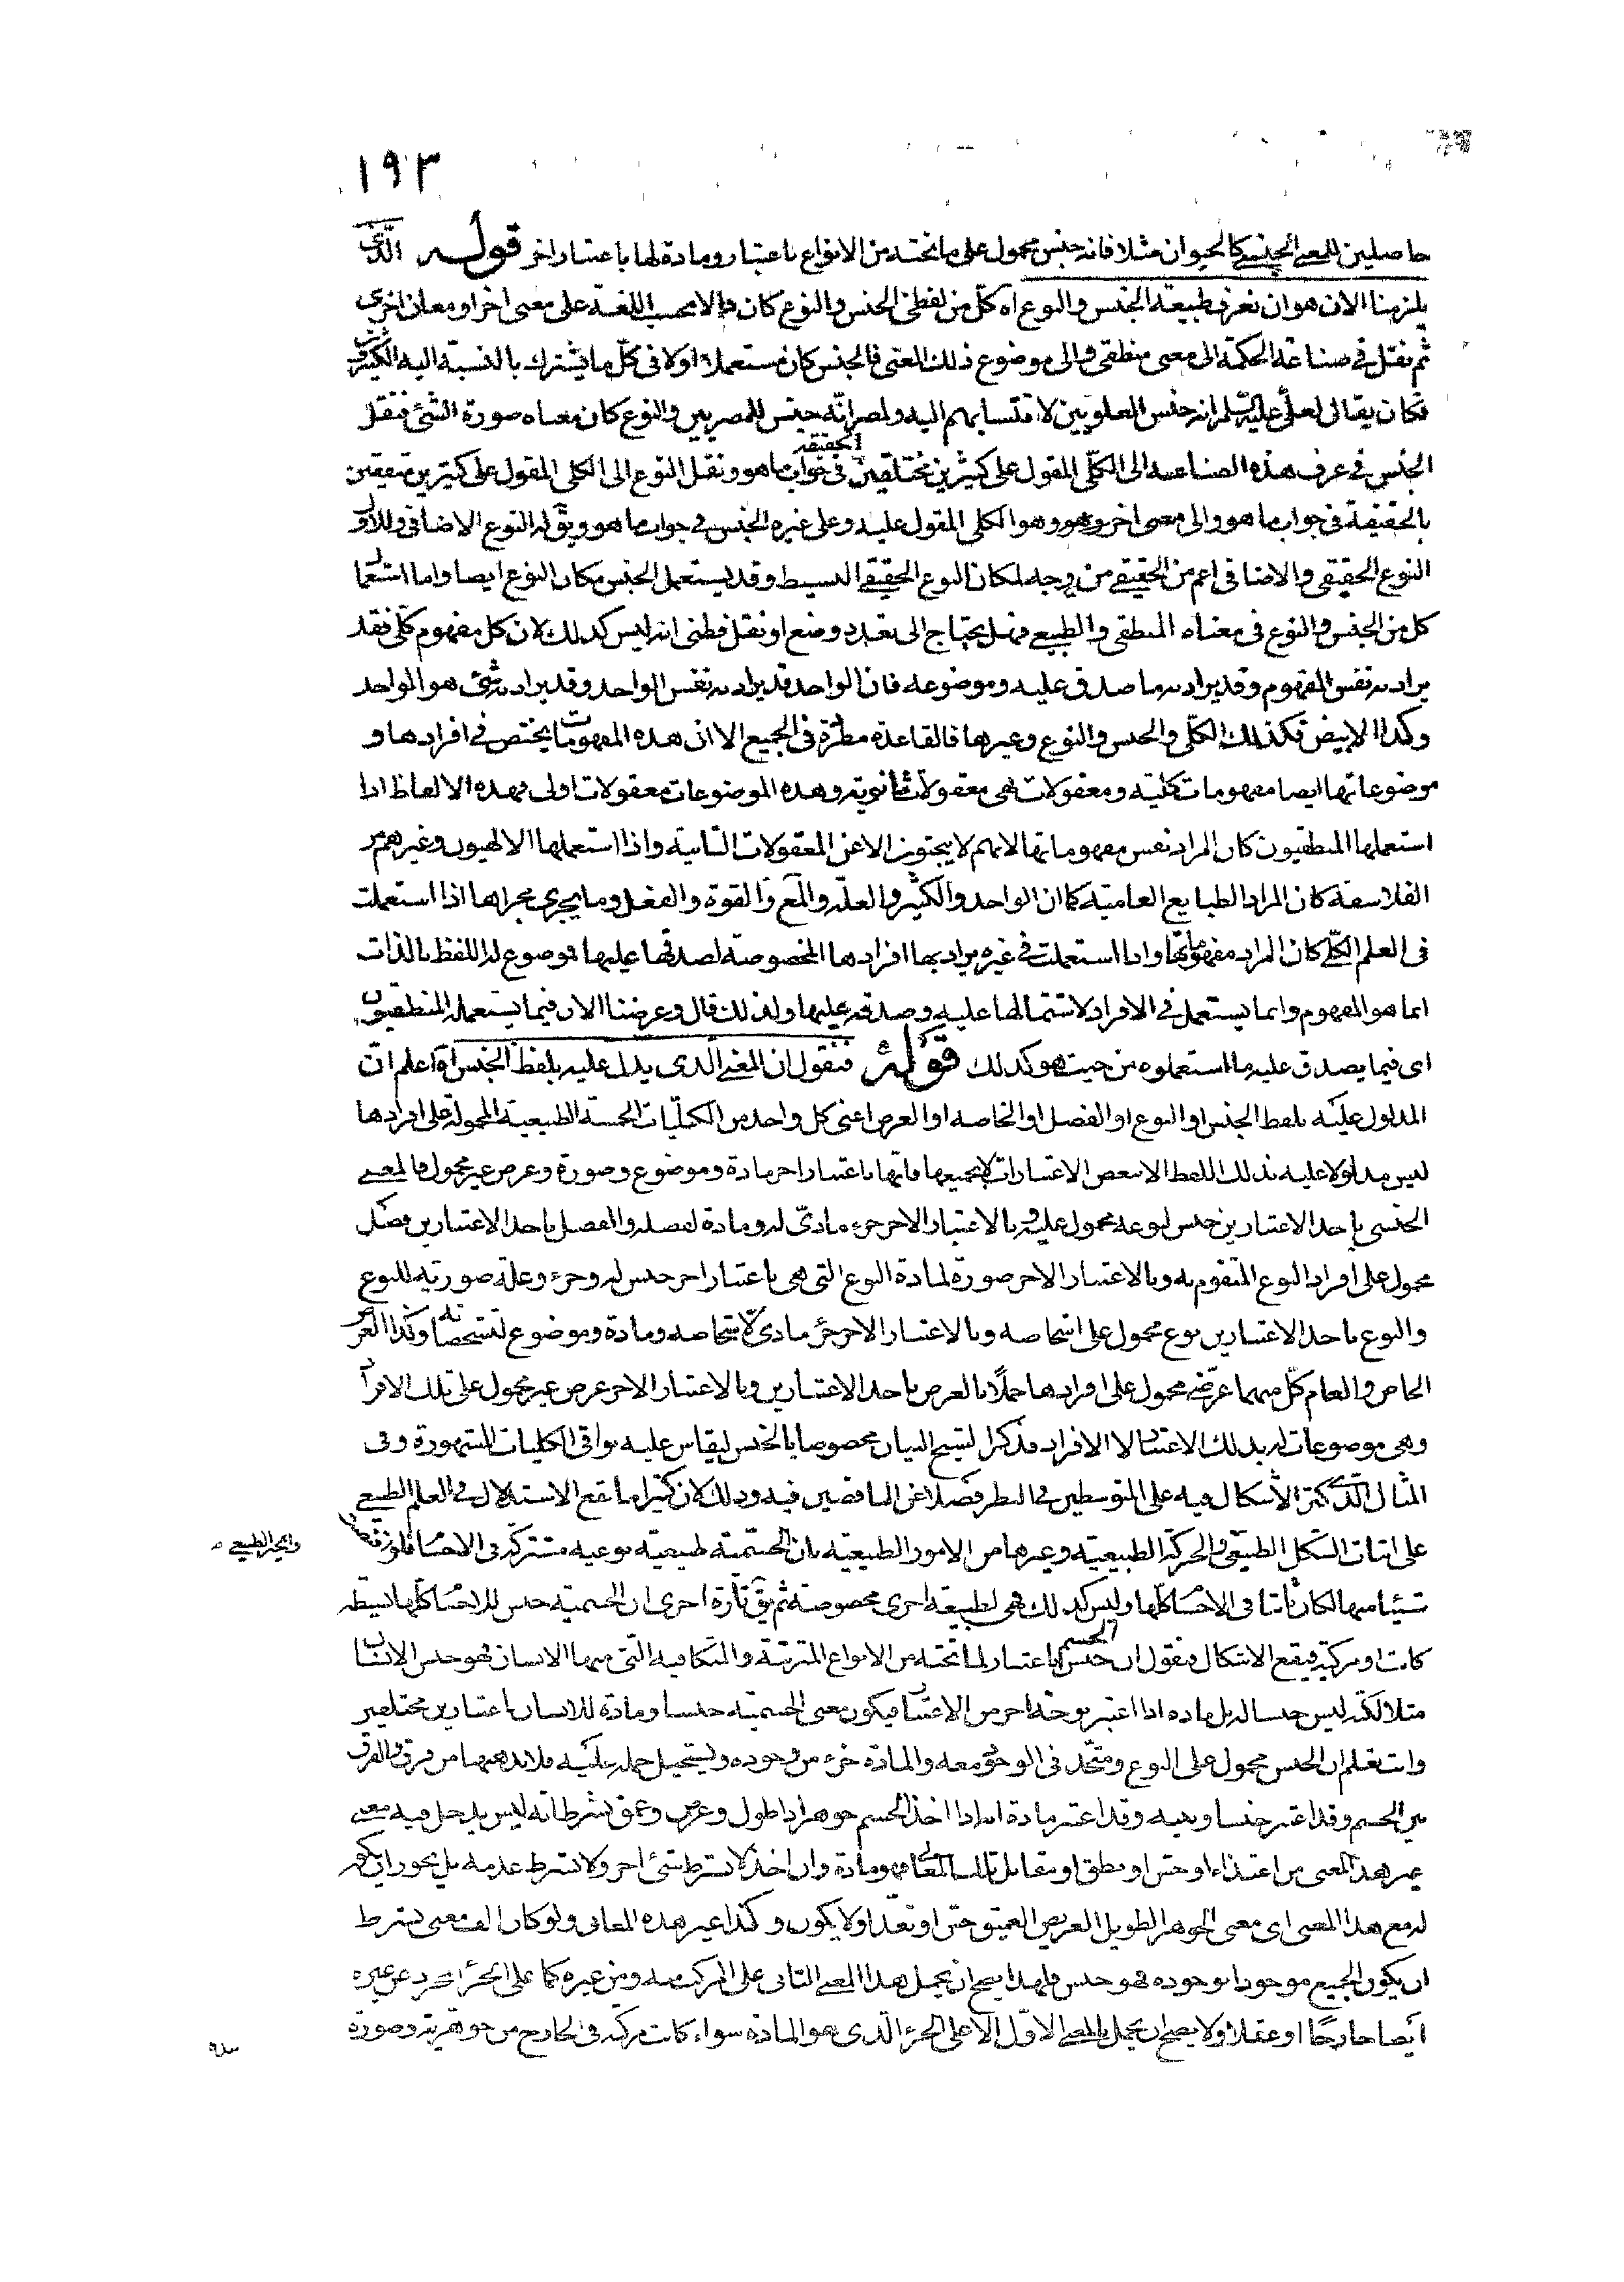 ١٩٣
حاصلين للمعنى الجنسي كالحيوان مثلا فانه جنس محمول على ما تحته من الانواع باعتبار ومادة لها باعتبار اخر قوله الذى
يلزمنا الان هو ان نعرف طبيعة الجنس والنوع اه كل من لفظى الجنس والنوع كان دالا بحسب اللغة على معنى اخر او معان اخرى
ثم نقل فى صناعة الحكمة الى معنى منطقى والى موضوع ذلك المعنى فالجنس كان مستعملا اولا فى كل ما يشترك بالنسبة اليه الكثيرون
فكان يقال لعلى عليه السلم انه جنس العلويين لانتسابهم اليه ولمصر انه جنس للمصريين والنوع كان معناه صورة الشئ فنقل
الجنس فى عرف هذه الصناعة الى الكلى المقول على كثيرين مختلفين الحقيقة فى جواب ما هو ونقل النوع الى الكلى المقول على كثيرين متفقين
بالحقيقة فى جواب ما هو والى معنى اخر وهو وهو الكلى المقول عليه وعلى غيره الجنس فى جواب ما هو ويق له النوع الاضافى وللاول
النوع الحقيقى والاضافى اعم من الحقيقى من وجه لمكان النوع الحقيقى البسيط وقد يستعمل الجنس مكان النوع ايضا واما استعمال
كل من الجنس والنوع فى معناه المنطقى والطبيعى فهل يحتاج الى تعدد وضع او نقل فظنى انه ليس كذلك لان كل مفهوم كلى فقد
يراد به نفس المفهوم وقد يراد به ما صدق عليه وموضوعه فان الواحد قد يراد به نفس الواحد وقد يراد به شئ هو الواحد
وكذا الابيض فكذلك الكلى والجنس والنوع وغيرها فالقاعدة مطردة فى الجميع الا ان هذه المفهومات يختص فى افرادها و
موضوعاتها ايضا مفهومات كلية ومعقولات هى معقولات ثانوية وهذه الموضوعات معقولات اولى فهذه الالفاظ اذا
استعملها المنطقيون كان المراد نفس مفهوماتها لانهم لا يبحثون الا عن المعقولات الثانية واذا استعملها الالهيون وغيرهم من
الفلاسفة كان المراد الطبايع العامية كما ان الواحد والكثير والعلة والمع والقوة والفعل وما يجرى مجراها اذا استعملت
فى العلم الكلى كان المراد مفهوماتها واذا استعملت فى غيره يراد بها افرادها المخصوصة لصدقها عليها فموضوع له اللفظ بالذات
انما هو المفهوم وانما يستعمل فى الافراد لاشتمالها عليه وصدقه عليها ولذلك قال وغرضنا الان فيما يستعمله المنطقيون
اى فيما يصدق عليه ما استعملوه من حيث هو كذلك قوله فنقول ان المعنى الذى يدل عليه بلفظ الجنس اه اعلم ان
المدلول عليه بلفظ الجنس او النوع او الفصل او الخاصة او العرض اعنى كل واحد من الكليات الخمسة الطبيعية المحمولة على افرادها
ليس مدلولا عليه بذلك اللفظ الا ببعض الاعتبارات لا بجميعها فانها باعتبار اخر مادة وموضوع وصورة وعرض غير محمول فالمعنى
الجنسى باحد الاعتبارين جنس لنوعه محمول عليه وبالاعتبار الاخر جزء مادى له ومادة لفصله والفصل باحد الاعتبارين فصل
محمول على افراد النوع المتقوم به وبالاعتبار الاخر صورة لمادة النوع التى هى باعتبار اخر جنس له وجزء وعلة صورية للنوع
والنوع باحد الاعتبارين نوع محمول على اشخاصه وبالاعتبار الاخر جزء مادى لاشخاصه ومادة وموضوع لتشخصاته وكذا العرض
الخاص والعام كل منهما عرضى محمول على افرادها حملا بالعرض باحد الاعتبارين وبالاعتبار الاخر عرض غير محمول على تلك الافراد
وهى موضوعات له بذلك الاعتبار لا الافراد فذكر الشيخ البيان مخصوصا بالجنس ليقاس عليه بواقى الكليات المشهورة وفى
المثال الذى كثر الاشكال فيه على المتوسطين فى النظر فضلا عن الناقصين فيه وذلك لان كثيرا ما يقع الاستدلال فى العلم الطبيعى
على اثبات الشكل الطبيعى والحركة الطبيعية وغيرها من الامور الطبيعية بان الجسمية طبيعية نوعية مشتركة فى الاجسام فلو اقتضت
والحيز الطبيعى
شيئا منها لكان ثابتا فى الاجسام كلها وليس كذلك فهى لطبيعة اخرى مخصوصة ثم يق تارة اخرى ان الجسمية جنس للاجسام كلها بسيطة
كانت او مركبة فيقع الاشكال فنقول ان الجسم جنس باعتبار لما تحته من الانواع المترتبة والمتكافية التى منها الانسان فهو جنس الانسان
مثلا لكنه ليس جنسا له بل مادة اذا اعتبر بوجه اخر من الاعتبار فيكون معنى الجسمية جنسا ومادة للانسان باعتبارين مختلفين
وانت تعلم ان الجنس محمول على النوع ومتحد فى الوجود معه والمادة جزء من وجوده ويستحيل حمله عليه فلا بد ههنا من فرق والفرق
بين الجسم وقد اعتبر جنسا وبينه وقد اعتبر مادة انه اذا اخذ الجسم جوهرا ذا طول وعرض وعمق بشرط انه ليس يدخل فيه معنى
غير هذا المعنى من اغتذاء او حس او نطق او مقابل تلك المعانى فهو مادة وان اخذ لا بشرط شئ اخر ولا بشرط عدمه بل يجوز ان يكون
له مع هذا المعنى اى معنى الجوهر الطويل العريض العميق حس او تغذ او لا يكون وكذا غير هذه المعانى ولو كان الف معنى بشرط
ان يكون الجميع موجودا بوجوده فهو جنس فلهذا يصح ان يحمل هذا المعنى الثانى على المركب منه ومن غيره كما على الجزء المجرد عن غيره
ايضا خارجا او عقلا ولا يصح ان يحمل بالمعنى الاول الا على الجزء الذى هو المادة سواء كانت مركبة فى الخارج من جوهرية وصورة